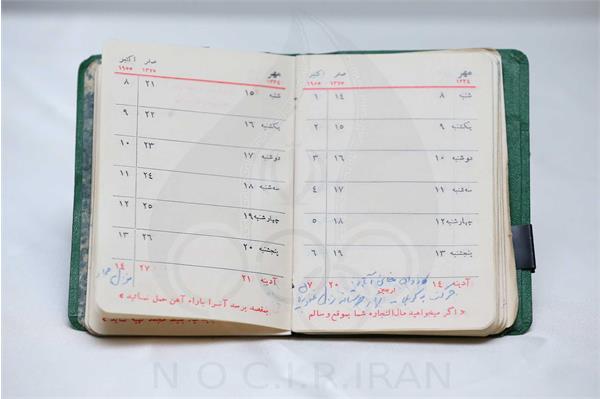 مهر صفر اکتبر
۱۳۳۴ ۱۳۷۵ ۱۹۵۵
شنبه ۸ ۱۴ ۱
یکشنبه ۹ ۱۵ ۲
دوشنبه ۱۰ ۱۶ ۳
سه‌شنبه ۱۱ ۱۷ ۴
چهارشنبه ۱۲ ۱۸ ۵
پنجشنبه ۱۳ ۱۹ ۶
آدینه ۱۴ ۲۰ ۷
« اگر میخواهید مال‌التجاره شما بموقع و سالم
مهر صفر اکتبر
۱۳۳۴ ۱۳۷۵ ۱۹۵۵
شنبه ۱۵ ۲۱ ۸
یکشنبه ۱۶ ۲۲ ۹
دوشنبه ۱۷ ۲۳ ۱۰
سه‌شنبه ۱۸ ۲۴ ۱۱
چهارشنبه ۱۹ ۲۵ ۱۲
پنجشنبه ۲۰ ۲۶ ۱۳
آدینه ۲۱ ۲۷ ۱۴
بمقصد برسد آنرا با راه آهن حمل نمائید »
N O C.I.R.IRAN